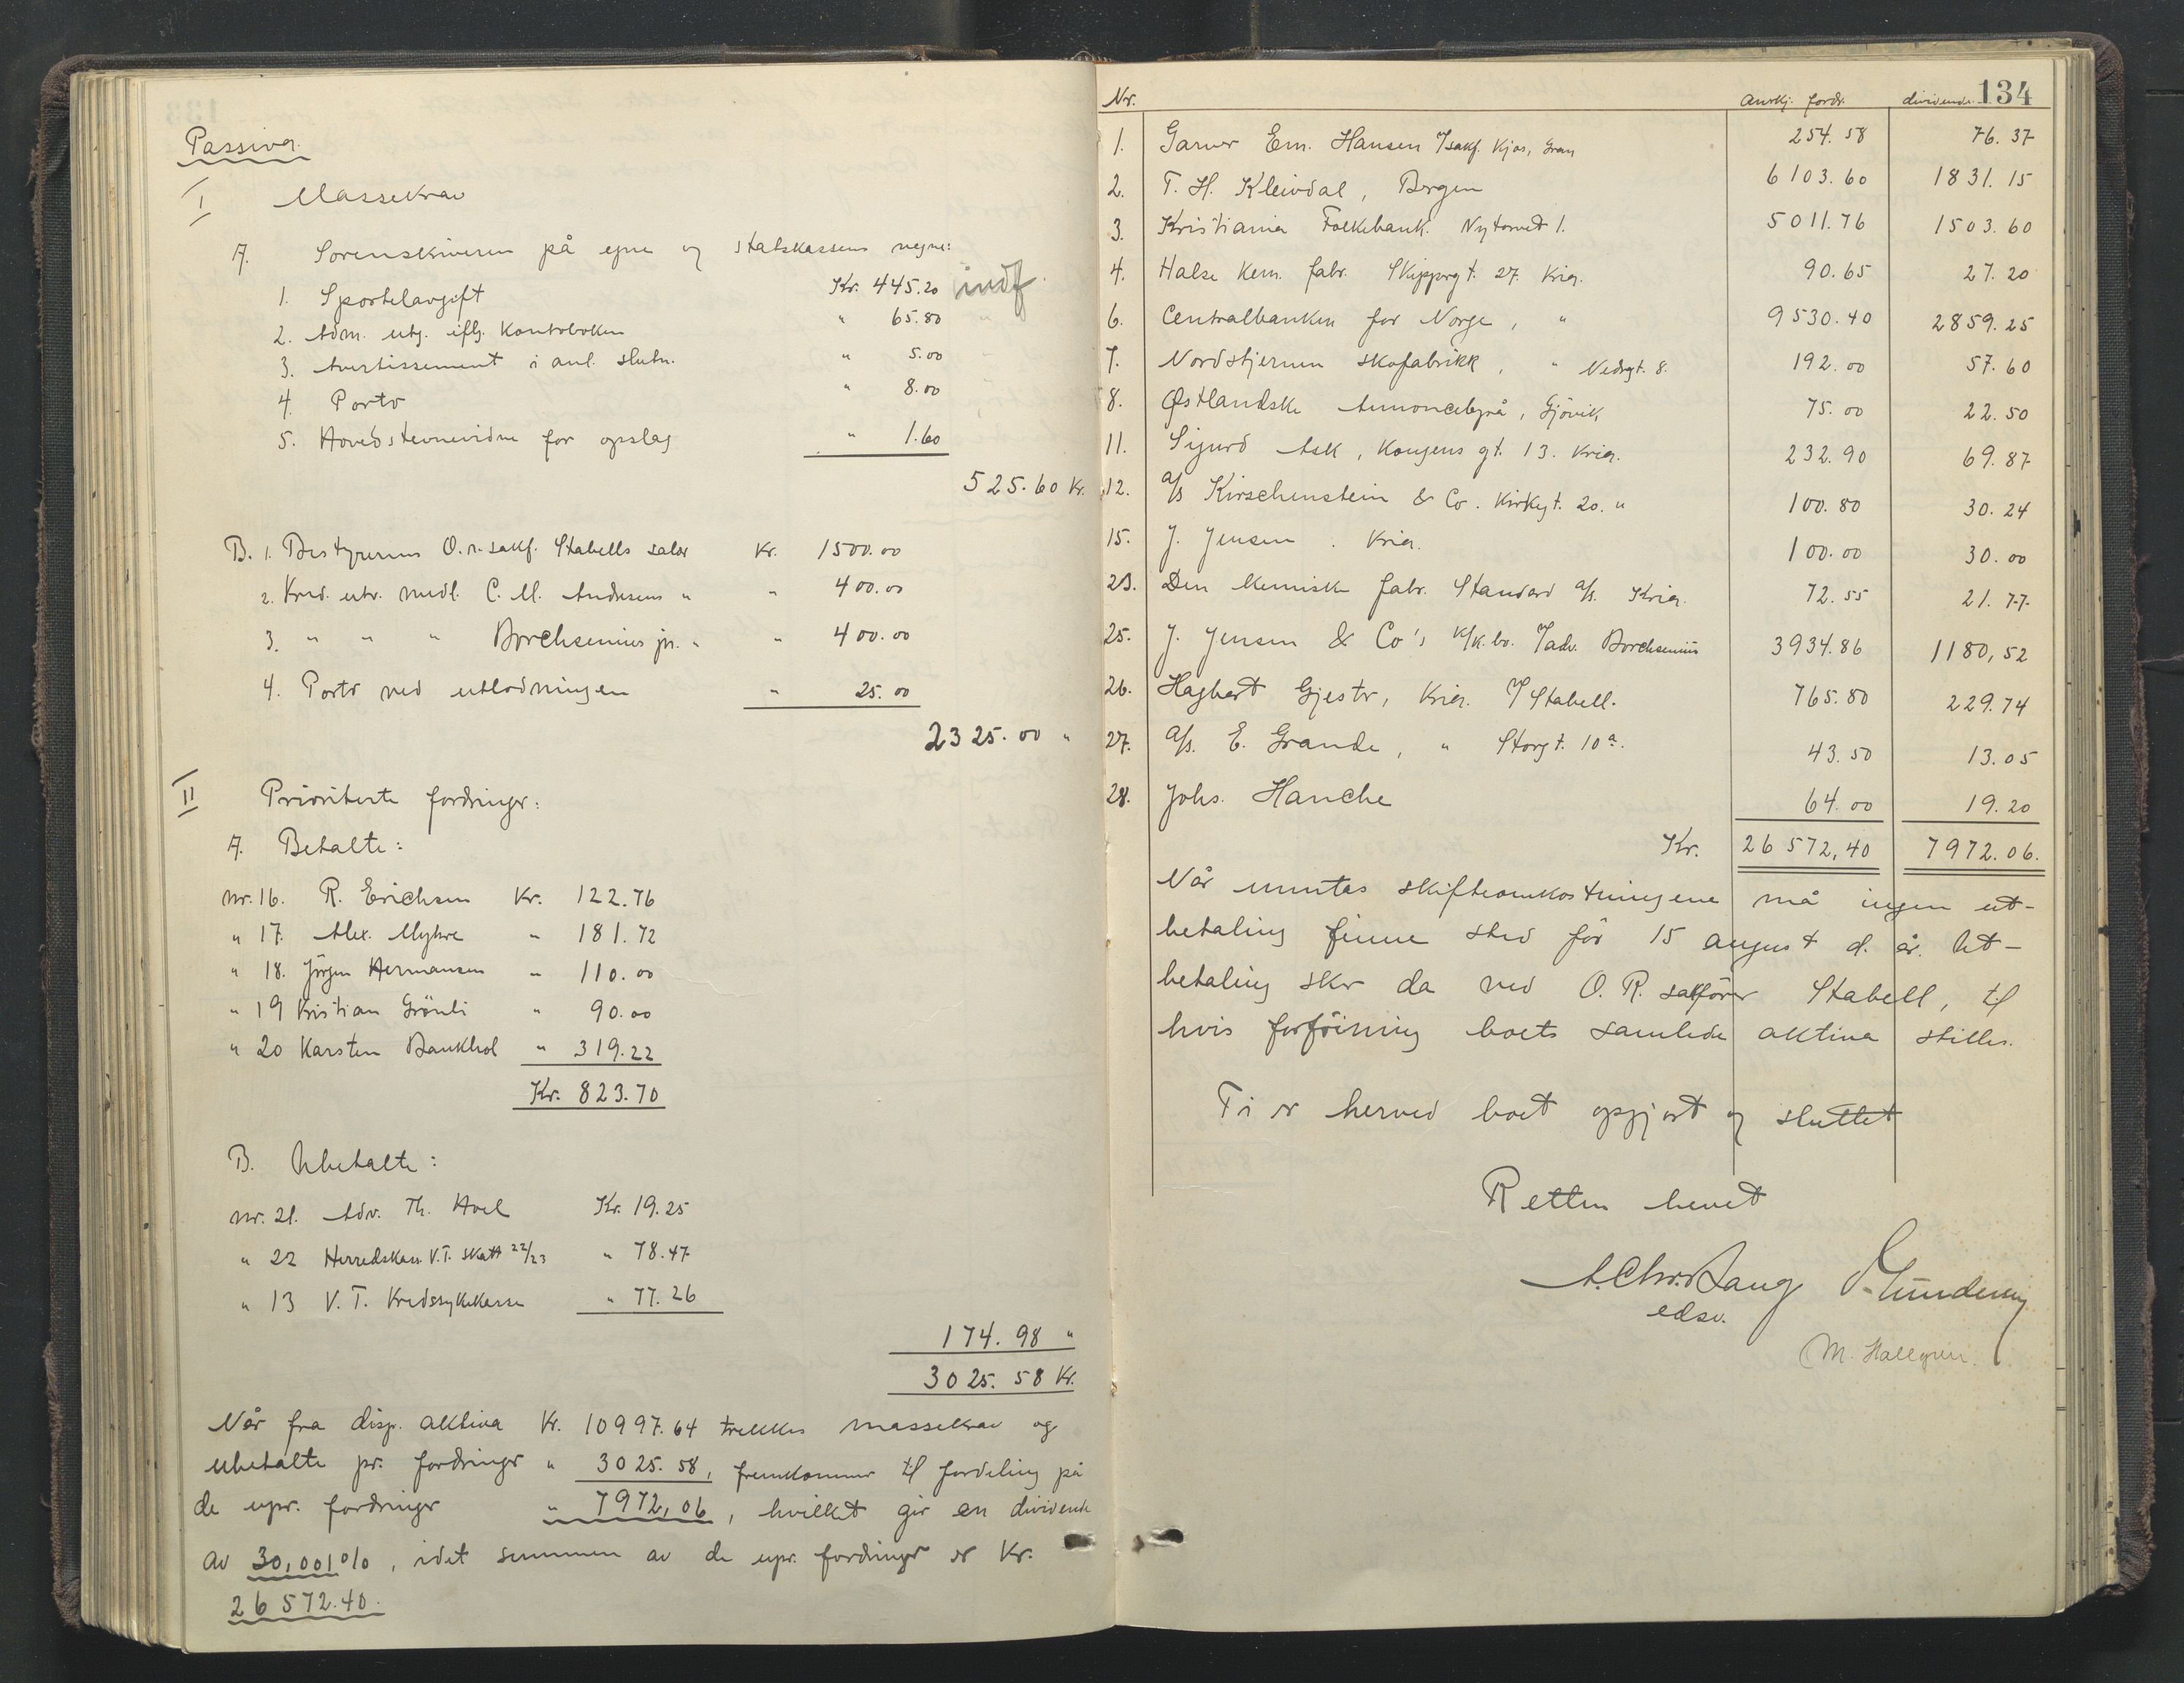 Passiva.
I Massekrav
A. Sorenskriveren på egne og statskassens vegne:
1. Sportelavgift Kr. 445.20 indf.
2. Adm. utg. iflg. kontoboken " 65.80
3. Avertissement i anl. slutn. " 5.00
4. Porto " 8.00
5. Hovedstevnevidne for opslag " 1.60
525.60 Kr.
B. 1. Bestyrerens O.r.sakf. Stabells salær Kr. 1500.00
2. Kred. utv. medl. C. M. Andersens " " 400.00
3. " " " Borchsenius jr. " " 400.00
4. Porto ved utlodningen " 25.00
2325.00 "
II Prioriterte fordringer:
A. Betalte:
nr. 16. R. Erichsen Kr. 122.76
" 17. Alex. Myhre " 181.72
" 18. Jörgen Hermansen " 110.00
" 19 Kristian Grönli " 90.00
" 20 Karsten Bankhol " 319.22
Kr. 823.70
B. Ubetalte:
nr. 21. Adv. Th. Hoel Kr. 19.25
" 22 Herredskass. V.T. skatt 22/23 " 78.47
" 13 V. T. Kredssykekasse " 77.26
174.98 "
3025.58 Kr.
Når fra disp. aktiva Kr. 10997.64 trekkes massekrav og
ubetalte pr. fordringer " 3025.58, fremkommer til fordeling på
de upr. fordringer " 7972,06, hvilket gir en dividende
av 30,001%, idet summen av de upr. fordringer er Kr.
26572.40.
134
Nr. anerkj. fordr. dividende
1. Garver Em. Hansen %sakf. Kjos, Gran 254.58 76.37
2. T. H. Kleivdal, Bergen 6103.60 1831.15
3. Kristiania Folkebank. Nytorvet 1. 5011.76 1503.60
4. Halse kem. fabr. Skippergt. 27. Kria. 90.65 27.20
6. Centralbanken for Norge, " 9530.40 2859.25
7. Nordstjernen skofabrikk, " Nedregt. 8. 192.00 57.60
8. Østlandske Annoncebyrå, Gjövik 75.00 22.50
11. Sigurd Ask, Kongens gt. 13. Kria. 232.90 69.87
12. A/s Kirschenstein & Co. Kirkegt. 20. " 100.80 30.24
15. J. Jensen. Kria. 100.00 30.00
23. Den kemiske fabr. Standard A/s. Kria. 72.55 21.77
25. J. Jensen & Co's k/k. bo. %adv. Borchsenius 3934.86 1180,52
26. Hagbart Gjestv, Kria. % Stabell. 765.80 229.74
27. A/s. E. Grande, " Storgt. 10a. 43.50 13.05
28. Johs. Hanche 64.00 19.20
Kr. 26572,40 7972.06.
Når unntas skifteomkostningene må ingen ut-
betaling finne sted för 15 august d. år. Ut-
betaling sker da ved O. R. sakförer Stabell, til
hvis forföining boets samlede aktiva stilles.
Ti er herved boet opgjort og sluttet
Retten hevet
A. Chr. Bang
edsv.
M. Hallgren